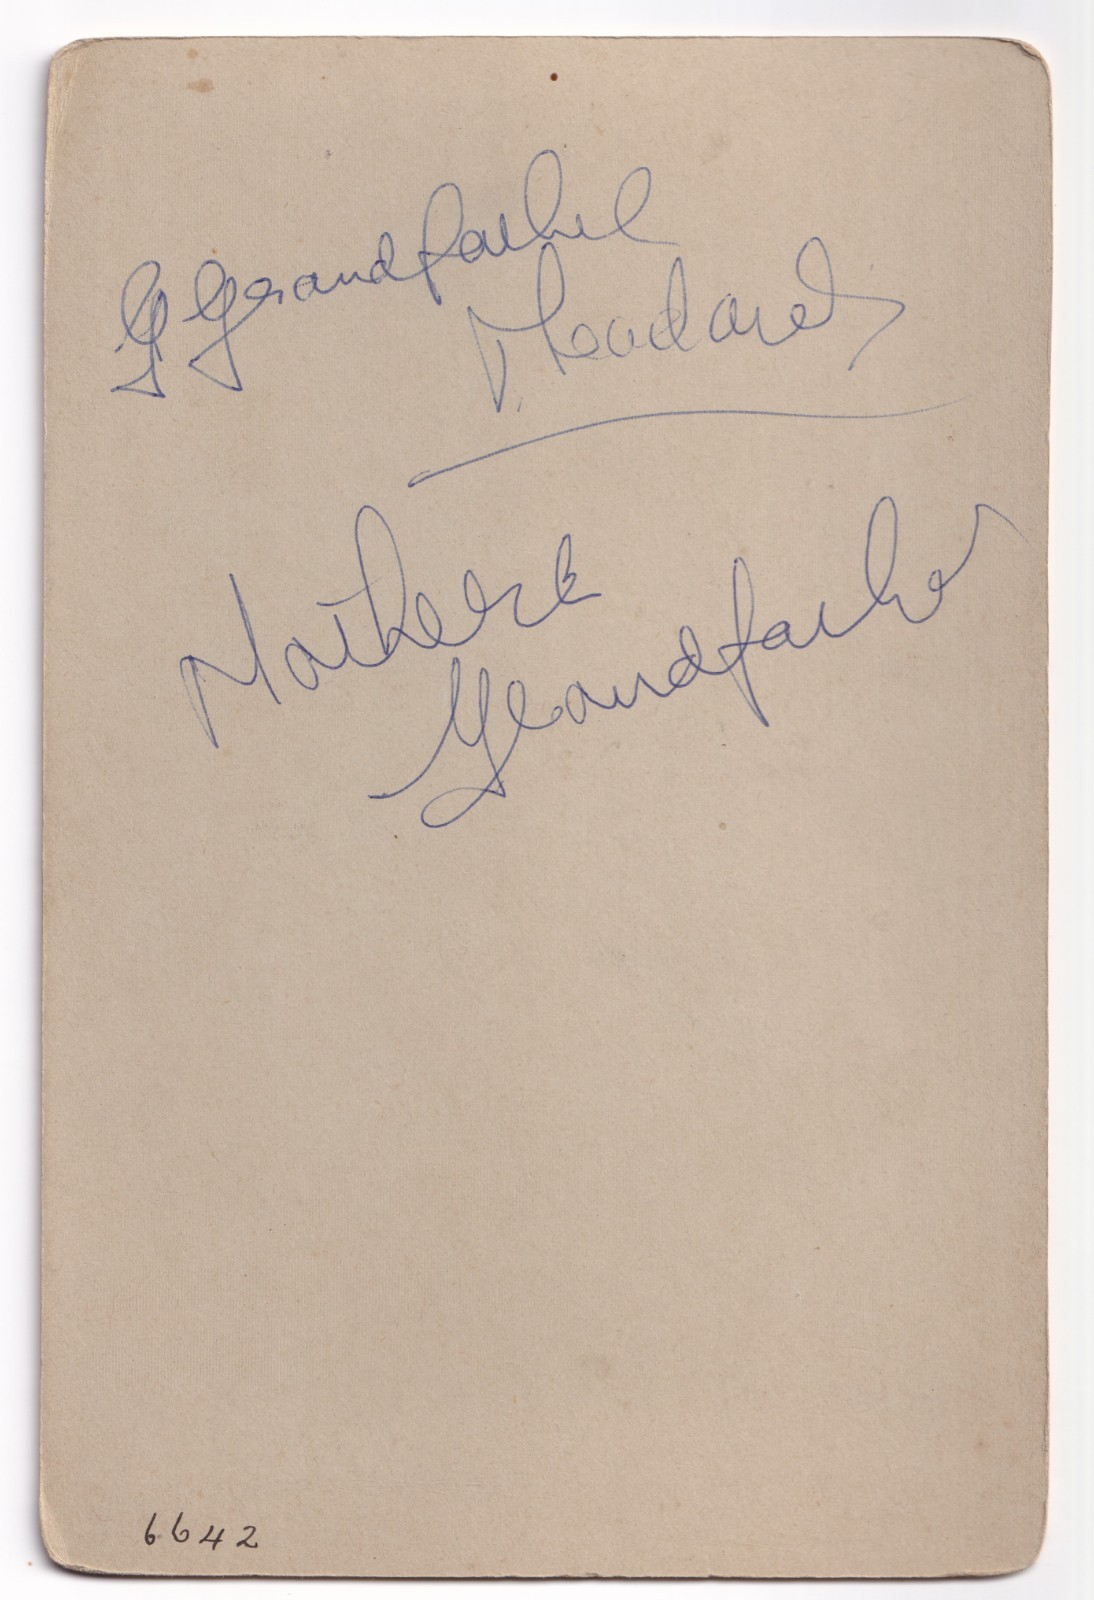 G Grandfather
Mothers
Grandfather
6642